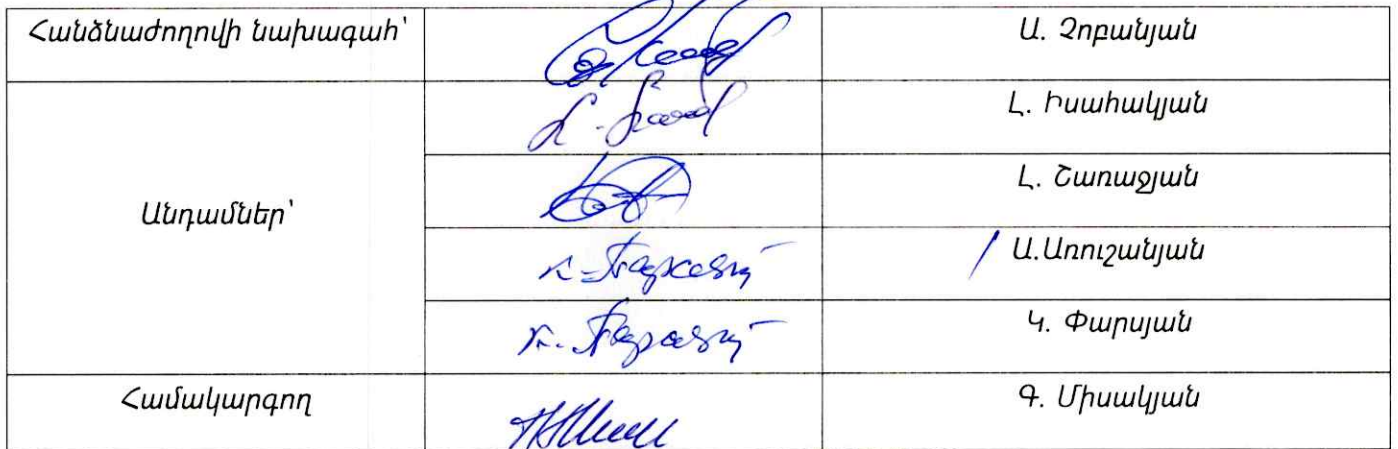 Հանձնաժողովի նախագահ՝
Ա. Չոբանյան
Լ. Իսահակյան
Լ. Շառաջյան
Անդամներ՝
/ Ա.Առուշանյան
Կ. Փարսյան
Համակարգող
Գ. Միսակյան